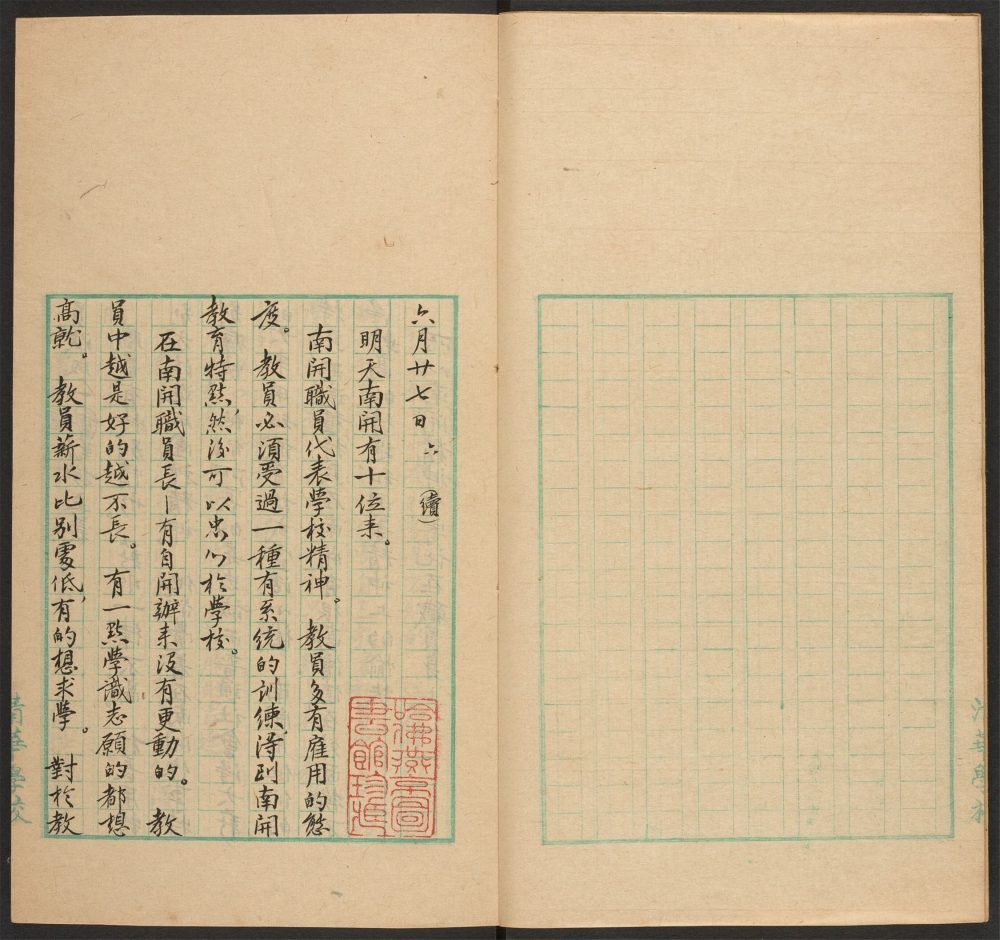 六月廿七日 六 (續)
明天南開有十位来。
南開職員代表學校精神。教員多有雇用的態
度。教員必須受過一種有系統的訓練,得到南開
教育特點,然後可以忠心於學校。
在南開職員長—有自開辦来没有更動的。教
員中越是好的越不長。有一點學識志願的都想
高就。教員薪水比別處低,有的想求學。對於教
哈佛燕京圖
書館珍藏
清華學校